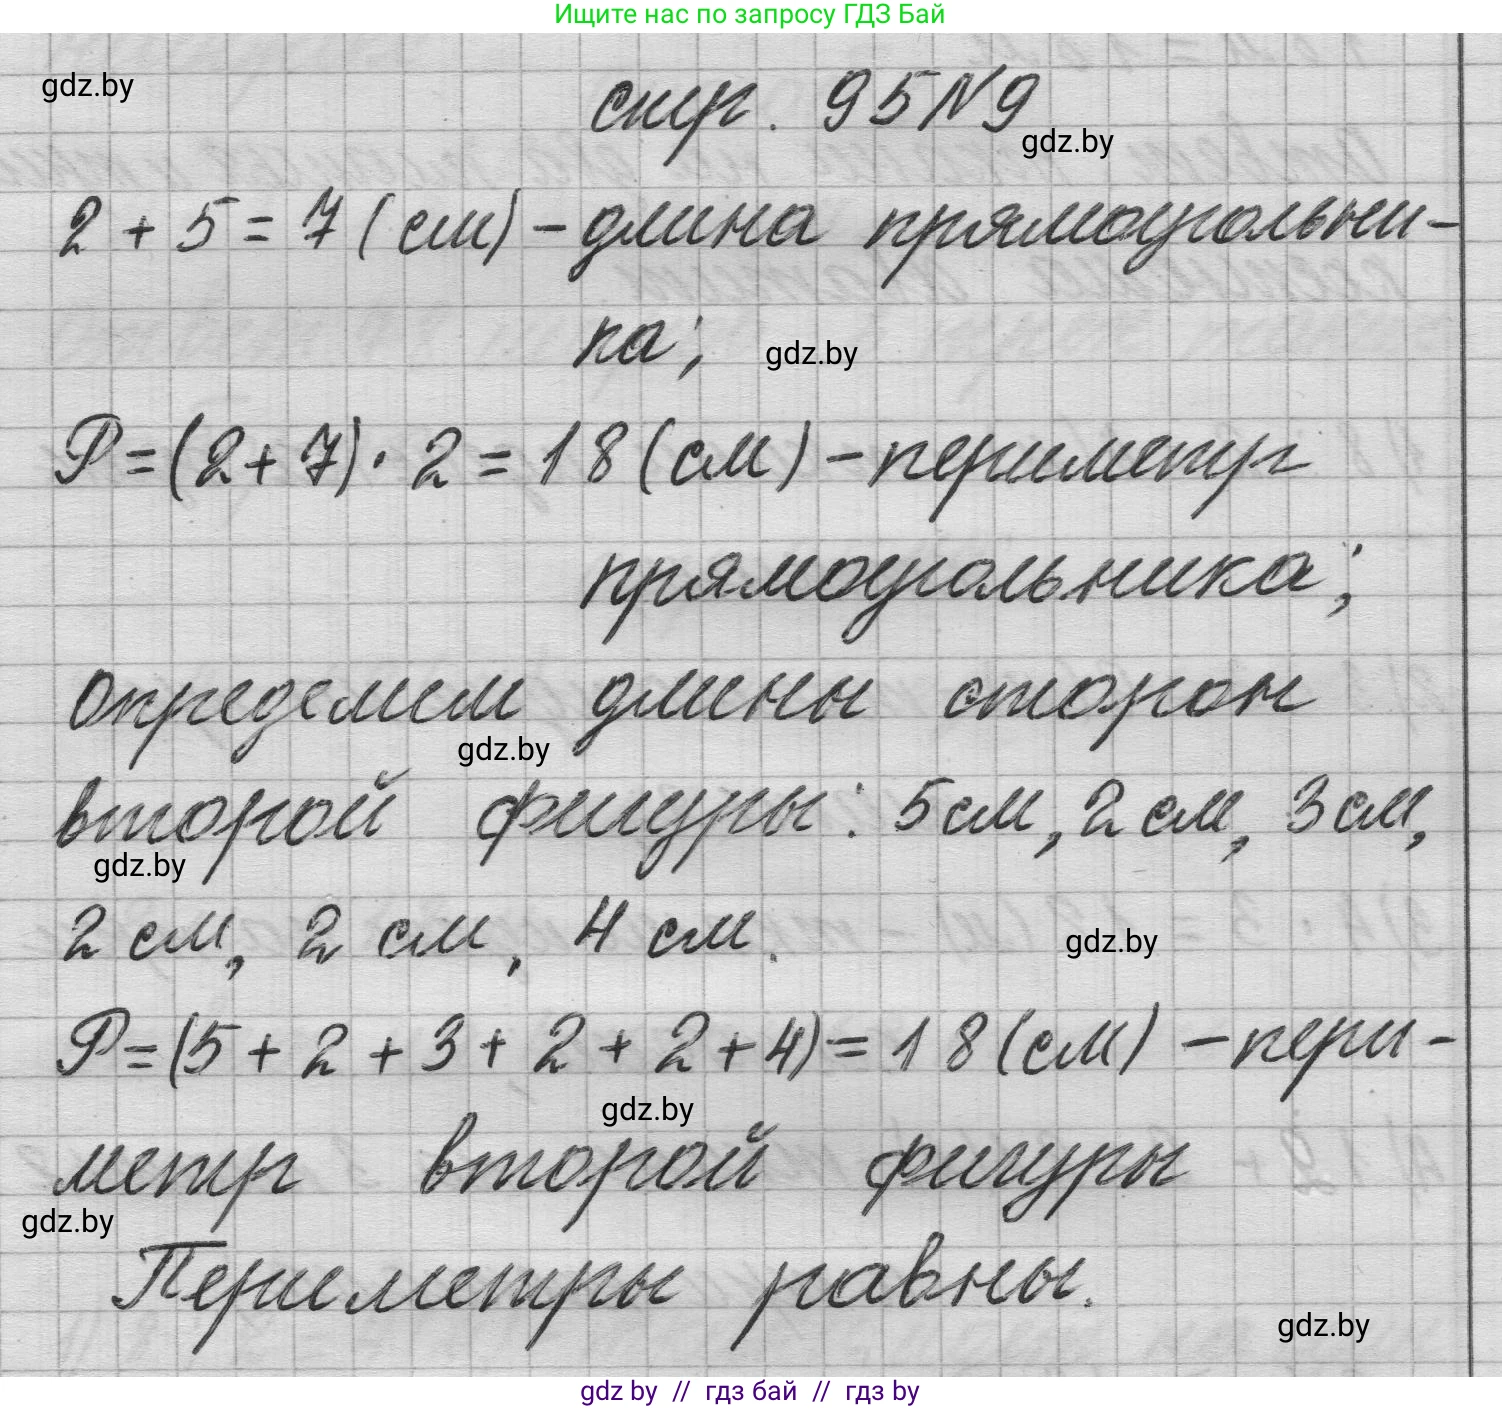 Ищите нас по запросу ГДЗ Бай
gdz.by
стр. 95 №9
gdz.by
2 + 5 = 7 (см) - длина прямоугольни-
ка;
gdz.by
P = (2 + 7) · 2 = 18 (см) - периметр
прямоугольника;
определим длины сторон
gdz.by
второй фигуры: 5 см, 2 см, 3 см,
gdz.by
2 см, 2 см, 4 см.
gdz.by
P = (5 + 2 + 3 + 2 + 2 + 4) = 18 (см) - пери-
gdz.by
метр второй фигуры
gdz.by
Периметры равны.
gdz.by
gdz by // гдз бай // гдз by